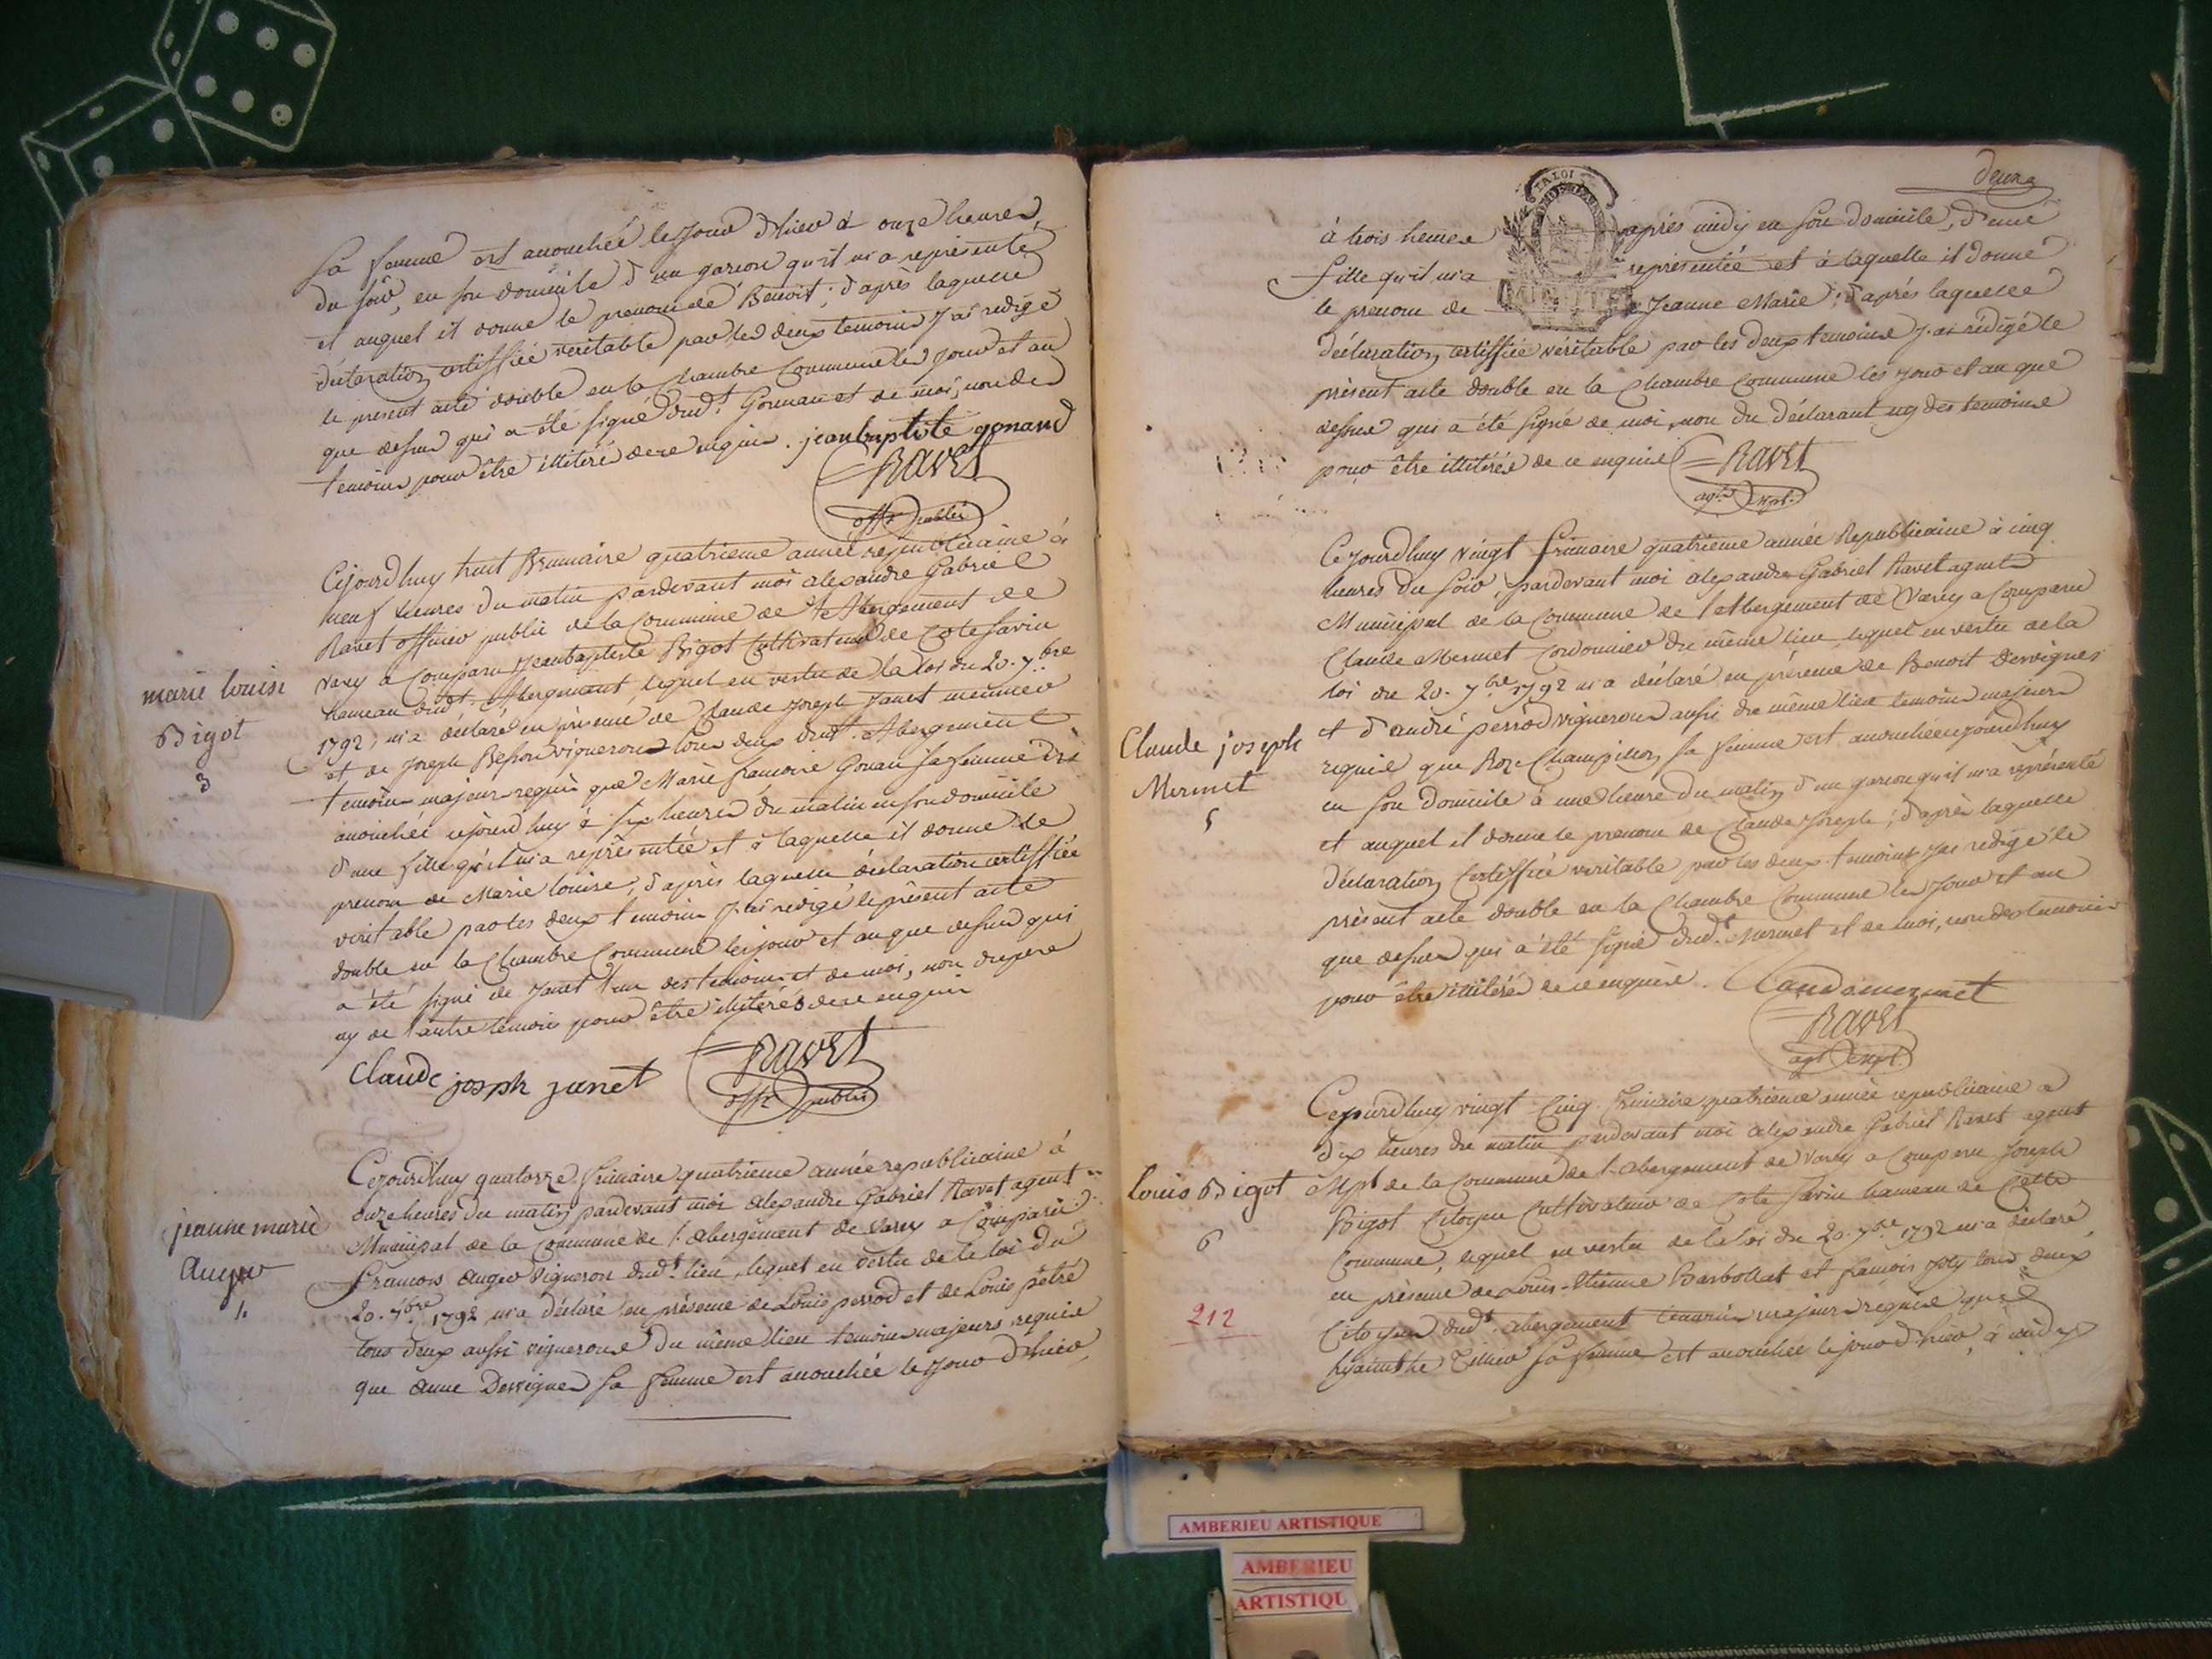 sa femme est accouchée le jour d'hier à onze heures
du soir, en son domicile d'un garcon qu'il m'a représenté
et auquel il donne le prenom de Benoit; d'après laquelle
déclaration certiffiée veritable par les deux temoins j'ai redigé
le present acte double en la chambre commune les jour et an
que dessus qui a été signé dud.t Gonnan et de moi, non des
temoins pour être illiterés de ce enquis. jean baptiste gonand
RAVET
offr public
Cejourd'huy huit Brumaire quatrieme année republicaine à
neuf heures du matin pardevant moi alexandre Gabriel
Ravet officier public de la Commune de l'Abergement de
varey a Comparu Jean baptiste Bigot Cultivateur de Cotesavin
marie louise
Bigot
3
hameau dud.t Abergement lequel en vertu de la loi du 20. 7.bre
1792, m'a déclaré en présence de Claude Joseph Janet meunier
et de Joseph Besson vigneron tous deux dud.t Abergement
temoins majeurs requis que Marie francoise Gonan sa femme est
accouchée cejourd'huy à six heures du matin en son domicile
d'une fille qu'il m'a représentée et à laquelle il donne le
prenom de Marie louise, d'après laquelle déclaration certiffiée
veritable par les deux temoins j'ai redigé le présent acte
double en la chambre Commune les jour et an que dessus qui
a été signé de Janet l'un des temoins et de moi, non du pere
ny de l'autre temoin pour être illiterés de ce enquis
claude joseph janet
RAVET
offr public
Cejourd'huy quatorze frimaire quatrieme année republicaine à
onze heures du matin pardevant moi alexandre Gabriel Ravet agent
jeanne marie
Auger
4.
Municipal de la Commune de l'abergement de varey a Comparu
francois auger vigneron dud.t lieu, lequel en vertu de la loi du
20. 7.bre 1792 m'a déclaré en présence de Louis perrod et de Louis pêtre
tous deux aussi vignerons du même lieu temoins majeurs requis
que anne Dervignes sa femme est accouchée le jour d'hier,
deux
à trois heures après midy en son domicile, d'une
LA LOI
fille qu'il m'a représentée et à laquelle il donne
le prenom de Jeanne Marie; d'après laquelle
déclaration certiffiée véritable par les deux temoins j'ai rédigé le
présent acte double en la chambre commune les jour et an que
dessus qui a été signé de moi, non du déclarant ny des temoins
pour être illitérés de ce enquis RAVET
agt mpl
Cejourd'huy vingt frimaire quatrieme année Republicaine à cinq
heures du soir, pardevant moi alexandre Gabriel Ravet agent
Municipal de la Commune de l'Abergement de Varey a Comparu
Claude Mermet Cordonnier du même lieu lequel en vertu de la
loi du 20. 7.bre 1792 m'a déclaré en présence de Benoit Dervignes
Claude joseph
Mermet
5
et d'andré perrod vignerons aussi du même lieu temoins majeurs
requis que Roze Champillon sa femme est accouchée cejourd'huy
en son domicile à une heure du matin d'un garcon qu'il m'a représenté
et auquel il donne le prenom de Claude Joseph; d'après laquelle
déclaration certiffiée veritable par les deux temoins j'ai redigé le
présent acte double en la chambre Commune les jour et an
que dessus qui a été signé dud.t Mermet et de moi, non des temoins
pour être illiterés de ce enquis. Claude mermet
RAVET
agt mpl
Cejourd'huy vingt cinq frimaire quatrieme année republicaine a
dix heures du matin pardevant moi alexandre Gabriel Ravet agent
louis Bigot
6
Mpl de la Commune de l'abergement de varey a Comparu Joseph
Bigot Citoyen Cultivateur de Cote savin hameau de Cette
Commune, lequel en vertu de la loi du 20. 7.bre 1792 m'a déclaré
212
en présence de Louis-Etienne Barbollat et francois Joly tous deux
Citoyens dud.t abergement temoins majeurs requis que
hyacinthe Tillier sa femme est accouchée le jour d'hier, à midy
AMBERIEU ARTISTIQUE
AMBERIEU
ARTISTIQU